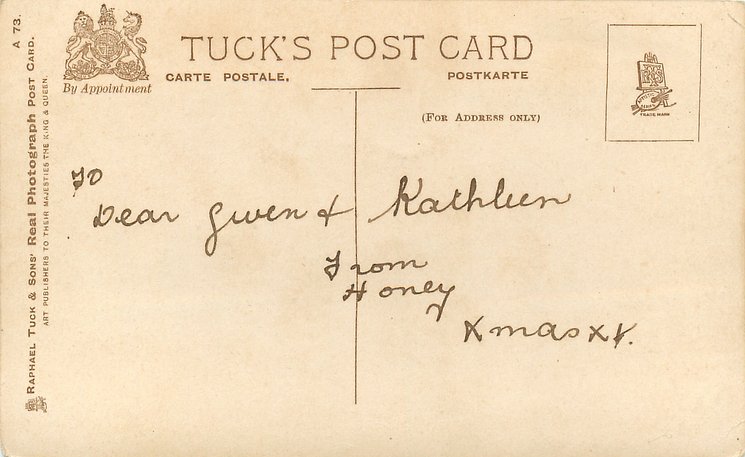 TUCK'S POST CARD
CARTE POSTALE.
POSTKARTE
By Appointment
(FOR ADDRESS ONLY)
TRADE MARK
A 73.
RAPHAEL TUCK & SONS' Real Photograph POST CARD.
ART PUBLISHERS TO THEIR MAJESTIES THE KING & QUEEN.
To
Dear Gwen & Kathleen
From
Honey
Xmas XX.